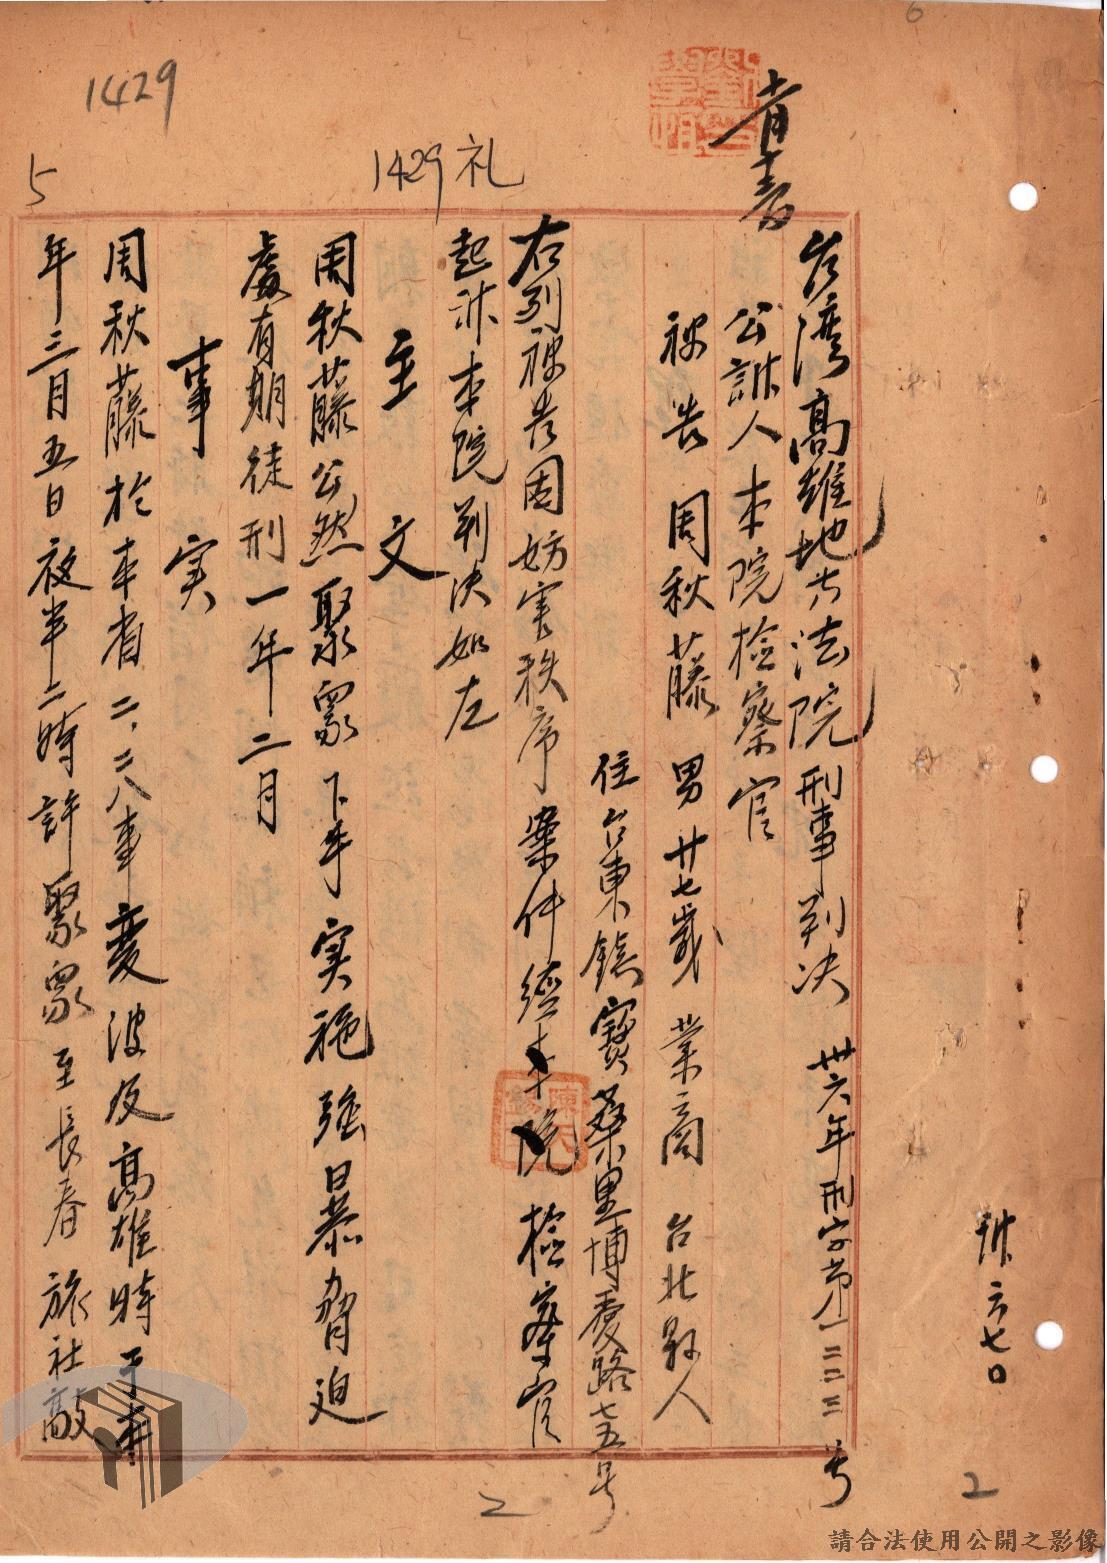 6
1429
1429 礼
5
台湾高雄地方法院刑事判决 卅六年刑字第一二三三号
公訴人本院检察官
被告 周秋藤 男 廿七歲 業商 台北县人
住台東鎮寶桑里博愛路七五号
右列被告因妨害秩序案件經本院检察官
起訴本院判决如左
主文
周秋藤公然聚眾下手实施强暴脅迫
處有期徒刑一年二月
事实
周秋藤於本省二、二八事变波及高雄時于本
年三月五日夜半二時許聚眾至長春旅社敲
訴六七〇
2
2
請合法使用公開之影像